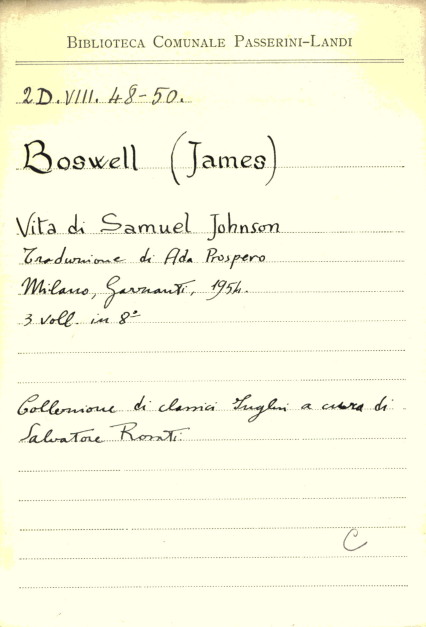 BIBLIOTECA COMUNALE PASSERINI-LANDI
2D.VIII. 48-50.
Boswell (James)
Vita di Samuel Johnson
Traduzione di Ada Prospero
Milano, Garzanti, 1954.
3 voll. in 8°
Collezione di classici Inglesi a cura di
Salvatore Rosati.
C